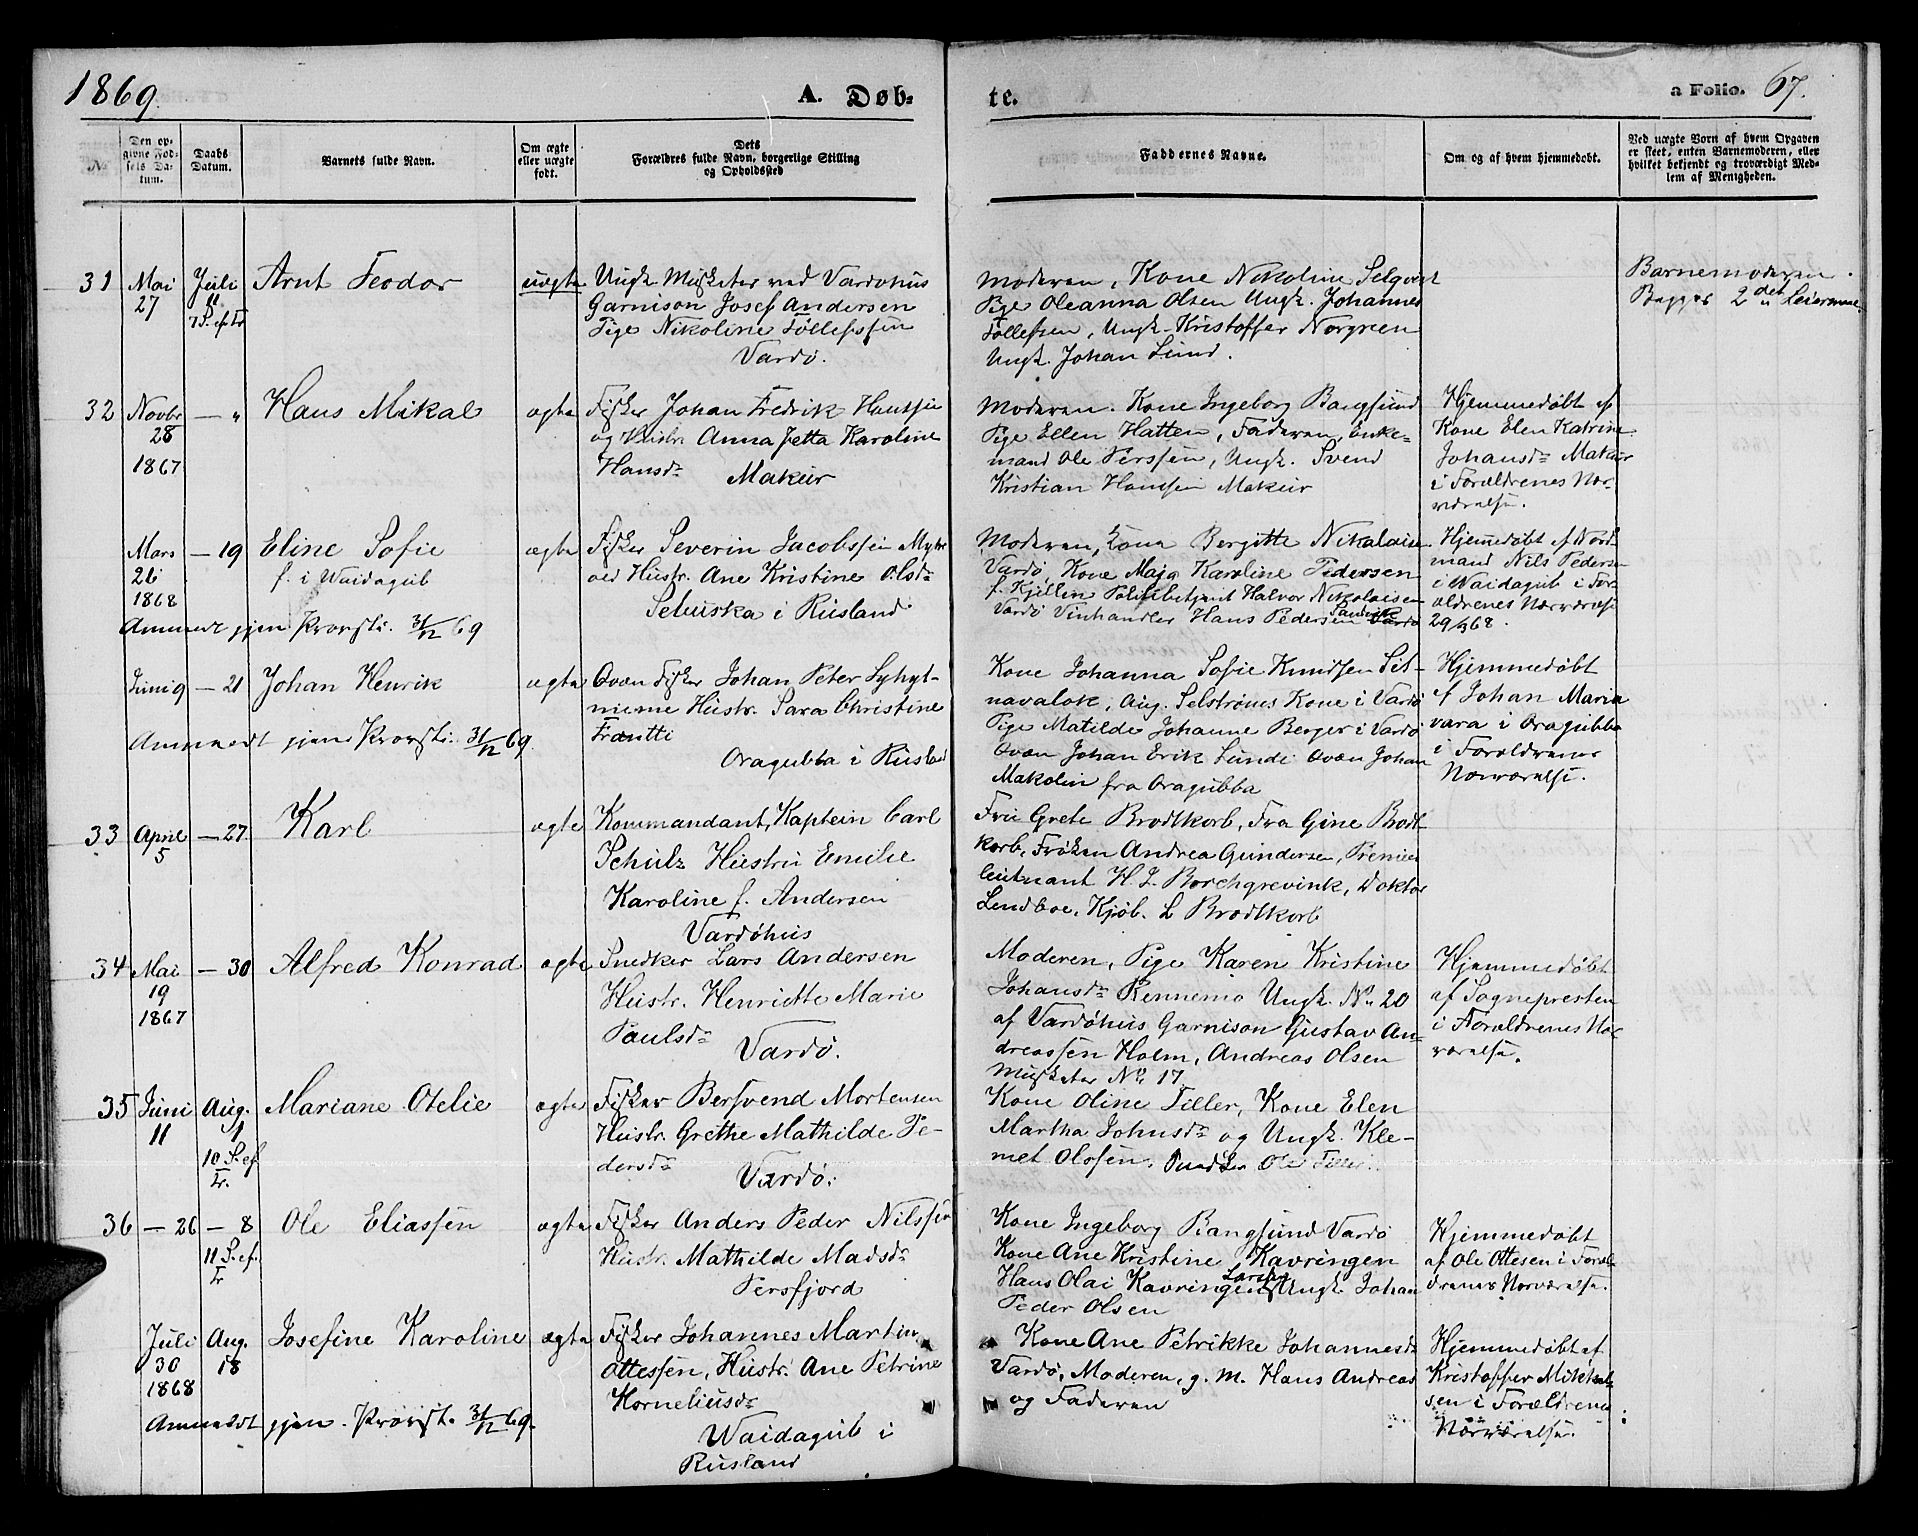 1869.
A. Døb-
te.
a Folio. 67.
No
Den op-
givne Fød-
sels Da-
tum.
Daabs
Datum.
Barnets fulde Navn.
Om ægte
eller uægte
født.
Dets
Forældres fulde Navn, borgerlige Stilling
og Opholdssted
Faddernes Navne.
Om og af hvem hjemmedøbt.
Ved uægte Born af hvem Opgaven
er skeet, enten Barnemoderen, eller
hvilket bekjendt og troværdigt Med-
lem af Menigheden.
31
Mai
27
Juli
11
7 S. ef Tr
Arnt Feodor
uægte
Ungk Musketer ved Vardøhus
Garnison Josef Andersen
Pige Nikoline Tollefssen
Vardø.
Moderen, Kone Nikoline Selqvist
Pige Oleanna Olsen Ungk. Johannes
Tollefsen, Ungk. Kristoffer Norgreen
Ungk. Johan Lund.
Barnemoderen.
Begges 2det Leiermaal.
32
Novbr
28
1867
— "
Hans Mikal
ægte
Fisker Johan Fredrik Hanssen
og Hustr. Anna Jetta Karoline
Hansdr
Makur
Moderen. Kone Ingeborg Bangsund
Pige Ellen Hatten, Faderen, Enke-
mand Ole Perssen, Ungk. Svend
Kristian Hanssen Makur
Hjemmedøbt af
Kone Elen Katrine
Johansdr Makur
i Forældrenes Nær-
værelse.
Mars
26
1868
— 19
Eline Sofie
f. i Waidagub
ægte
Fisker Severin Jacobssen Myhre
ved Hustr. Ane Kristine Olsdr
Setuiska i Rusland
Anmeldt gjen. Provsti. 31/12 69
Moderen, Kona Bergitte Nikolaisen
Vardø, Kone Maja Karoline Pedersen
f. Kjellin Politibetjent Halvor Nikolaisen
Vardø Vinhandler Hans Pedersen Sandvik Vardø
Hjemmedøbt af Nord-
mand Nils Pedersen
i Waidagub i For-
ældrenes Nærværelse
29/3 68.
Juni 9
— 21
Johan Henrik
ægte
Qvæn Fisker Johan Peter Lyhyt-
nieme Hustr. Sara Christine
Frantti
Oragubba i Rusland
Anmeldt gjen. Provsti. 31/12 69.
Kone Johanna Sofie Knudsen Sit-
navalok, Aug. Selstrøms Kone i Vardø
Pige Matilde Johanne Berger i Vardø
Qvæn Johan Erik Lundi Qvæn Johan
Makolin fra Oragubba
Hjemmedøbt
af Johan Maria
vara i Oragubba
i Forældrenes
Nærværelse.
33
April
5
— 27
Karl
ægte
Kommandant, Kaptein Carl
Schulz Hustru Emilie
Karoline f. Andersen
Vardøhus
Fru Grete Brodtkorb, Fru Gine Brodt-
korb, Frøken Andrea Gundersen, Premier
lieutnant H. L. Borchgrevink, Doktor
Lendboe, Kjøb. L Brodtkorb
34
Mai
19
1867
— 30
Alfred Konrad
ægte
Snedker Lars Andersen
Hustr. Henriette Marie
Paulsdr
Vardø.
Moderen, Pige Karen Kristine
Johansdr Rennemo Ungk. No 20
af Vardøhus Garnison Gustav An-
dreassen Holm, Andreas Olsen
Musketer No 17
Hjemmedøbt
af Sognepresten
i Forældrenes Nær
værelse.
35
Juni
11
Aug.
1
10 S. ef.
Tr.
Mariane Otelie
ægte
Fisker Bersvend Mortensen
Hustr. Grethe Mathilde Pe-
dersdr
Vardø.
Kone Oline Tiller, Kone Elen
Martha Johnsdr og Ungk. Kle-
met Olssen. Snedker Ole Tiller.
36
— 26
— 8
11 S. ef.
Tr
Ole Eliassen
ægte
Fisker Anders Peder Nilssen
Hustr. Mathilde Madsdr
Persfjord
Kone Ingeborg Bangsund Vardø
Kone Ane Kristine Kavringen
Hans Olai Kavringen Larsen Ungk Johan
Peder Olsen
Hjemmedøbt
af Ole Ottesen i Foræl
drenes Nærværelse.
Juli
30
1868
Aug.
18
Josefine Karoline
ægte
Fisker Johannes Martin
Ottessen, Hustr. Ane Petrine
Korneliusdr
Waidagub i
Rusland
Anmeldt gjen. Provsti. 31/12 69.
Kone Ane Petrikke Johannesdr
Vardø, Moderen, g. m. Hans Andreas
og Faderen
Hjemmedøbt af
Kristoffer Mikkel-
sen i Forældrenes
Nærværelse.